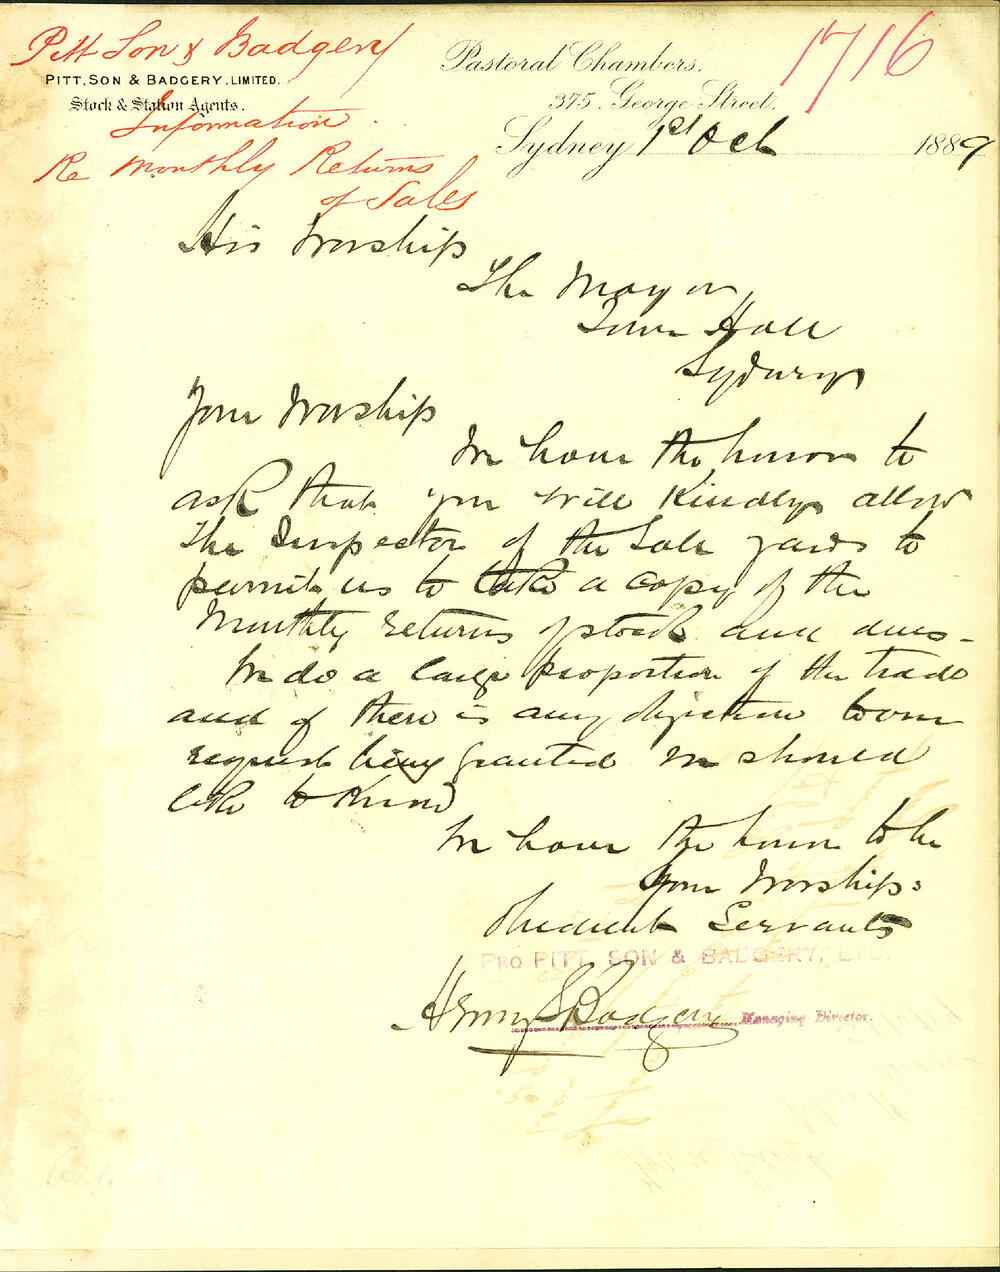 Pitt Son & Badgery
PITT, SON & BADGERY, LIMITED.
Stock & Station Agents.
Information
Re Monthly Returns
of Sales
Pastoral Chambers.
375, George Street.
1716
Sydney 1st Oct 1889
His Worship
The Mayor
Town Hall
Sydney
Your Worship
We have the honor to
ask that you will kindly allow
the Inspector of the Sale yards to
permit us to take a copy of the
Monthly returns of stock and dues -
We do a large proportion of the trade
and if there is any objection to our
request being granted we should
like to know
We have the honor to be
Your Worship's
Obedient Servants
PRO PITT, SON & BADGERY, LTD.
Henry S Badgery Managing Director.